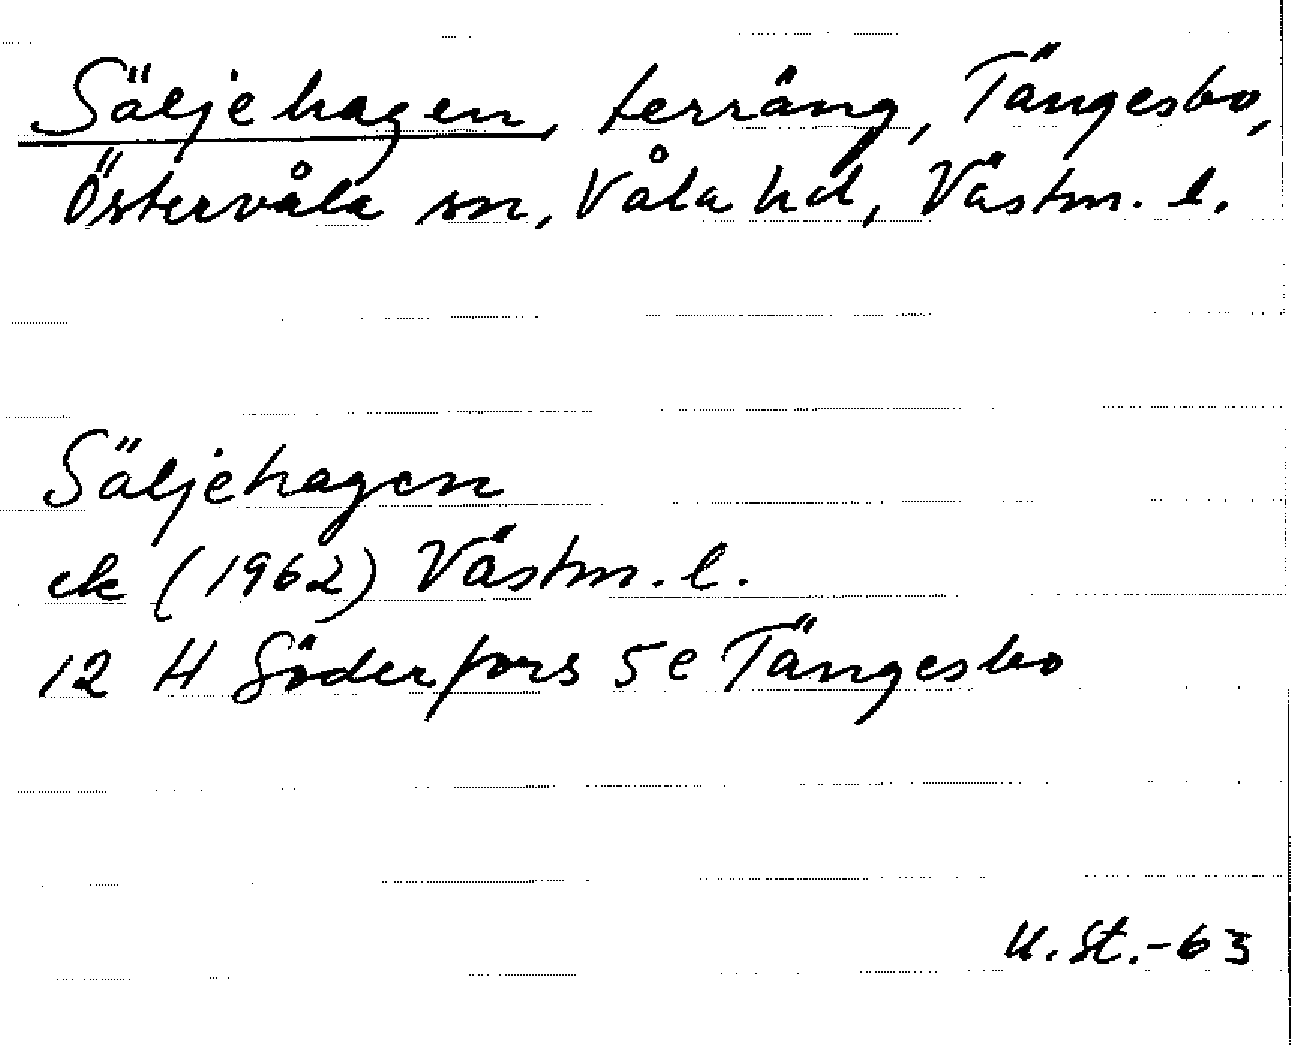 Säljehagen, terräng, Tängesbo,
Östervåla sn, Våla hd, Västm. l.
Säljehagen
ek (1962) Västm. l.
12 H Söderfors 5 e Tängesbo
U. St. -63